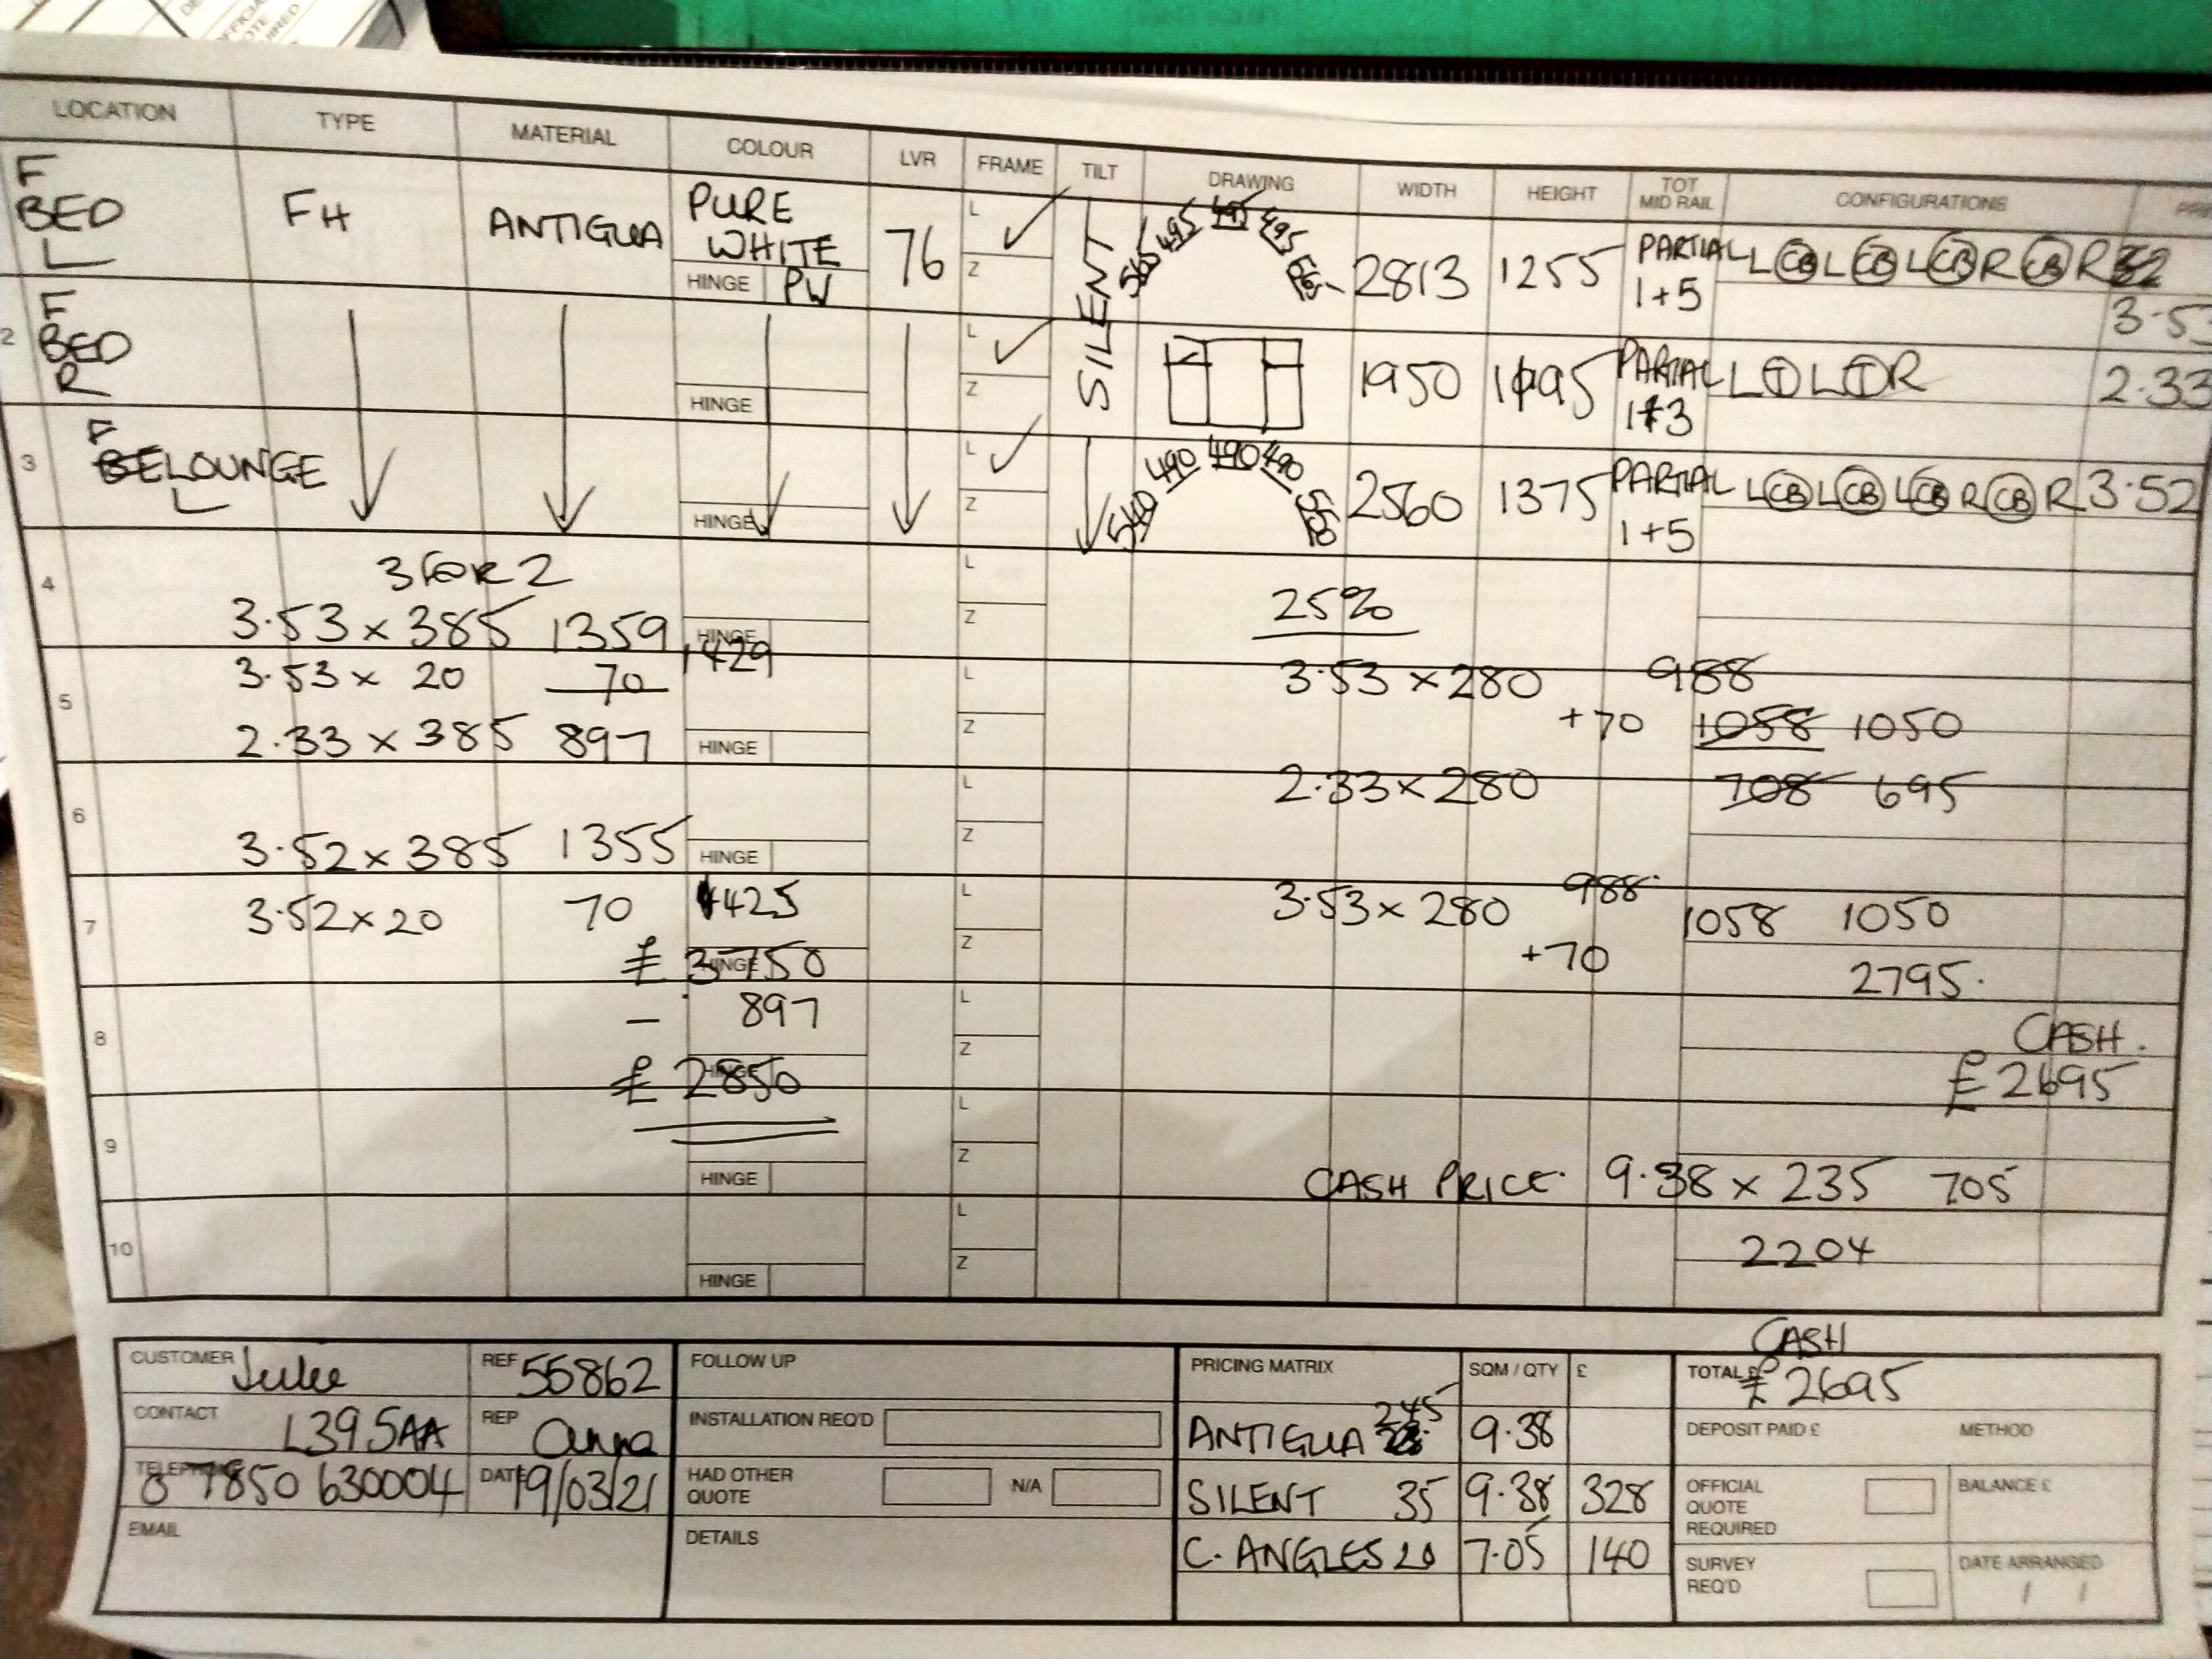 LOCATION TYPE MATERIAL COLOUR LVR FRAME TILT DRAWING WIDTH HEIGHT TOT MID RAIL CONFIGURATIONS
F BED L FH ANTIGUA PURE WHITE HINGE PW 76 L Z SILENT 565 495 495 495 2813 1255 PARTIAL 1+5 L CB L CB L CB R CB R
3.53
2 F BED R HINGE L Z 1950 PARTIAL 1+3 L T L T R 2.33
3 F LOUNGE L HINGE L Z 540 490 490 490 550 2560 1375 PARTIAL 1+5 L CB L CB L CB R CB R 3.52
4 3 FOR 2 L Z 25%
3.53 x 385 1359 HINGE 1429
5 3.53 x 20 70 L Z 3.53 x 280 988
+70 1058 1050
2.33 x 385 897 HINGE
6 L Z 2.33 x 280 708 695
3.52 x 385 1355 HINGE
7 3.52 x 20 70 1425 L Z 3.53 x 280 988 1058 1050
+70
£ 3750 HINGE 2795.
8 - 897 L Z CASH.
£ 2850 HINGE £2695
9 L Z
HINGE CASH PRICE 9.38 x 235 705
10 L Z 2204
HINGE
CUSTOMER Julie REF 55862 FOLLOW UP PRICING MATRIX SQM / QTY £ CASH TOTAL £ £2695
CONTACT L395AA REP Anna INSTALLATION REQ'D ANTIGUA 245 9.38 DEPOSIT PAID £ METHOD
TELEPHONE 07850 630004 DATE 19/03/21 HAD OTHER QUOTE N/A SILENT 35 9.38 328 OFFICIAL QUOTE REQUIRED BALANCE £
EMAIL DETAILS C. ANGLES 20 7.05 140 SURVEY REQ'D DATE ARRANGED / /